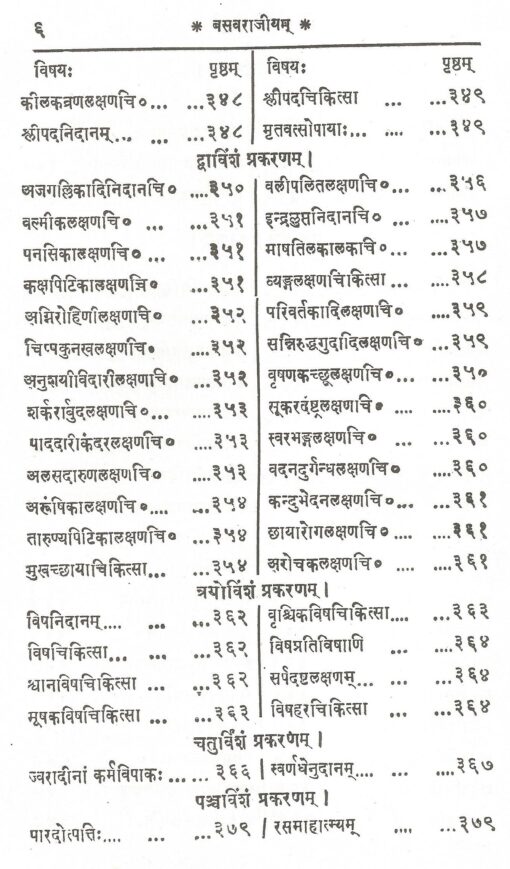 ६ * बसवराजीयम् *
विषयः पृष्ठम्
कीलकव्रणलक्षणचि०... ...३४८
श्लीपदनिदानम्... ...३४८
विषयः पृष्ठम्
श्लीपदचिकित्सा ... ...३४९
मृतवत्सोपायाः... .... ...३४९
द्वाविंशं प्रकरणम् ।
अजगल्लिकादिनिदानचि० ....३५०
वल्मीकलक्षणचि० ... ...३५१
पनसिकालक्षणचि० ...३५१
कक्षपिटिकालक्षणचि० ...३५१
अग्निरोहिणीलक्षणाचि० ...३५२
चिप्पकुनखलक्षणचि० ....३५२
अनुशयीविदारीलक्षणाचि० ...३५२
शर्करार्बुदलक्षणचि०... ....३५३
पाददारीकंदरलक्षणचि० ....३५३
अलसदारुणलक्षणचि० ....३५३
अरूंषिकालक्षणचि०.... ...३५४
तारुण्यपिटिकालक्षणचि० ...३५४
मुखच्छायाचिकित्सा... ...३५४
वलीपलितलक्षणचि०... ...३५६
इन्द्रलुप्तनिदानचि० ... ...३५७
माषतिलकालकाचि०... ...३५७
व्यङ्गलक्षणचिकित्सा... ...३५८
परिवर्तकादिलक्षणचि० ...३५९
सन्निरुद्धगुदादिलक्षणचि०...३५९
वृषणकच्छूलक्षणचि०... ...३५०
सूकरदंष्ट्रलक्षणाचि० .... ....३६०
स्वरभङ्गलक्षणचि० ... ...३६०
वदनदुर्गन्धलक्षणचि० ....३६०
कन्दुभेदनलक्षणचि०... ...३६१
छायारोगलक्षणचि०.... ....३६१
अरोचकलक्षणचि० .... ....३६१
त्रयोविंशं प्रकरणम् ।
विषनिदानम्.... ... ...३६२
विषचिकित्सा... ... ...३६२
श्वानविषचिकित्सा ... ...३६२
मूषकविषचिकित्सा ... ...३६३
वृश्चिकविषचिकित्सा.... ...३६३
विषप्रतिविषाणि ... ....३६४
सर्पदष्टलक्षणम्... ... ...३६४
विषहरचिकित्सा ... ...३६४
चतुर्विंशं प्रकरणम् ।
ज्वरादीनां कर्मविपाकः... ... ३६६ | स्वर्णधेनुदानम्.... ... ....३६७
पञ्चविंशं प्रकरणम् ।
पारदोत्पत्तिः.... ... ...३७९ | रसमाहात्म्यम् .... ...३७९